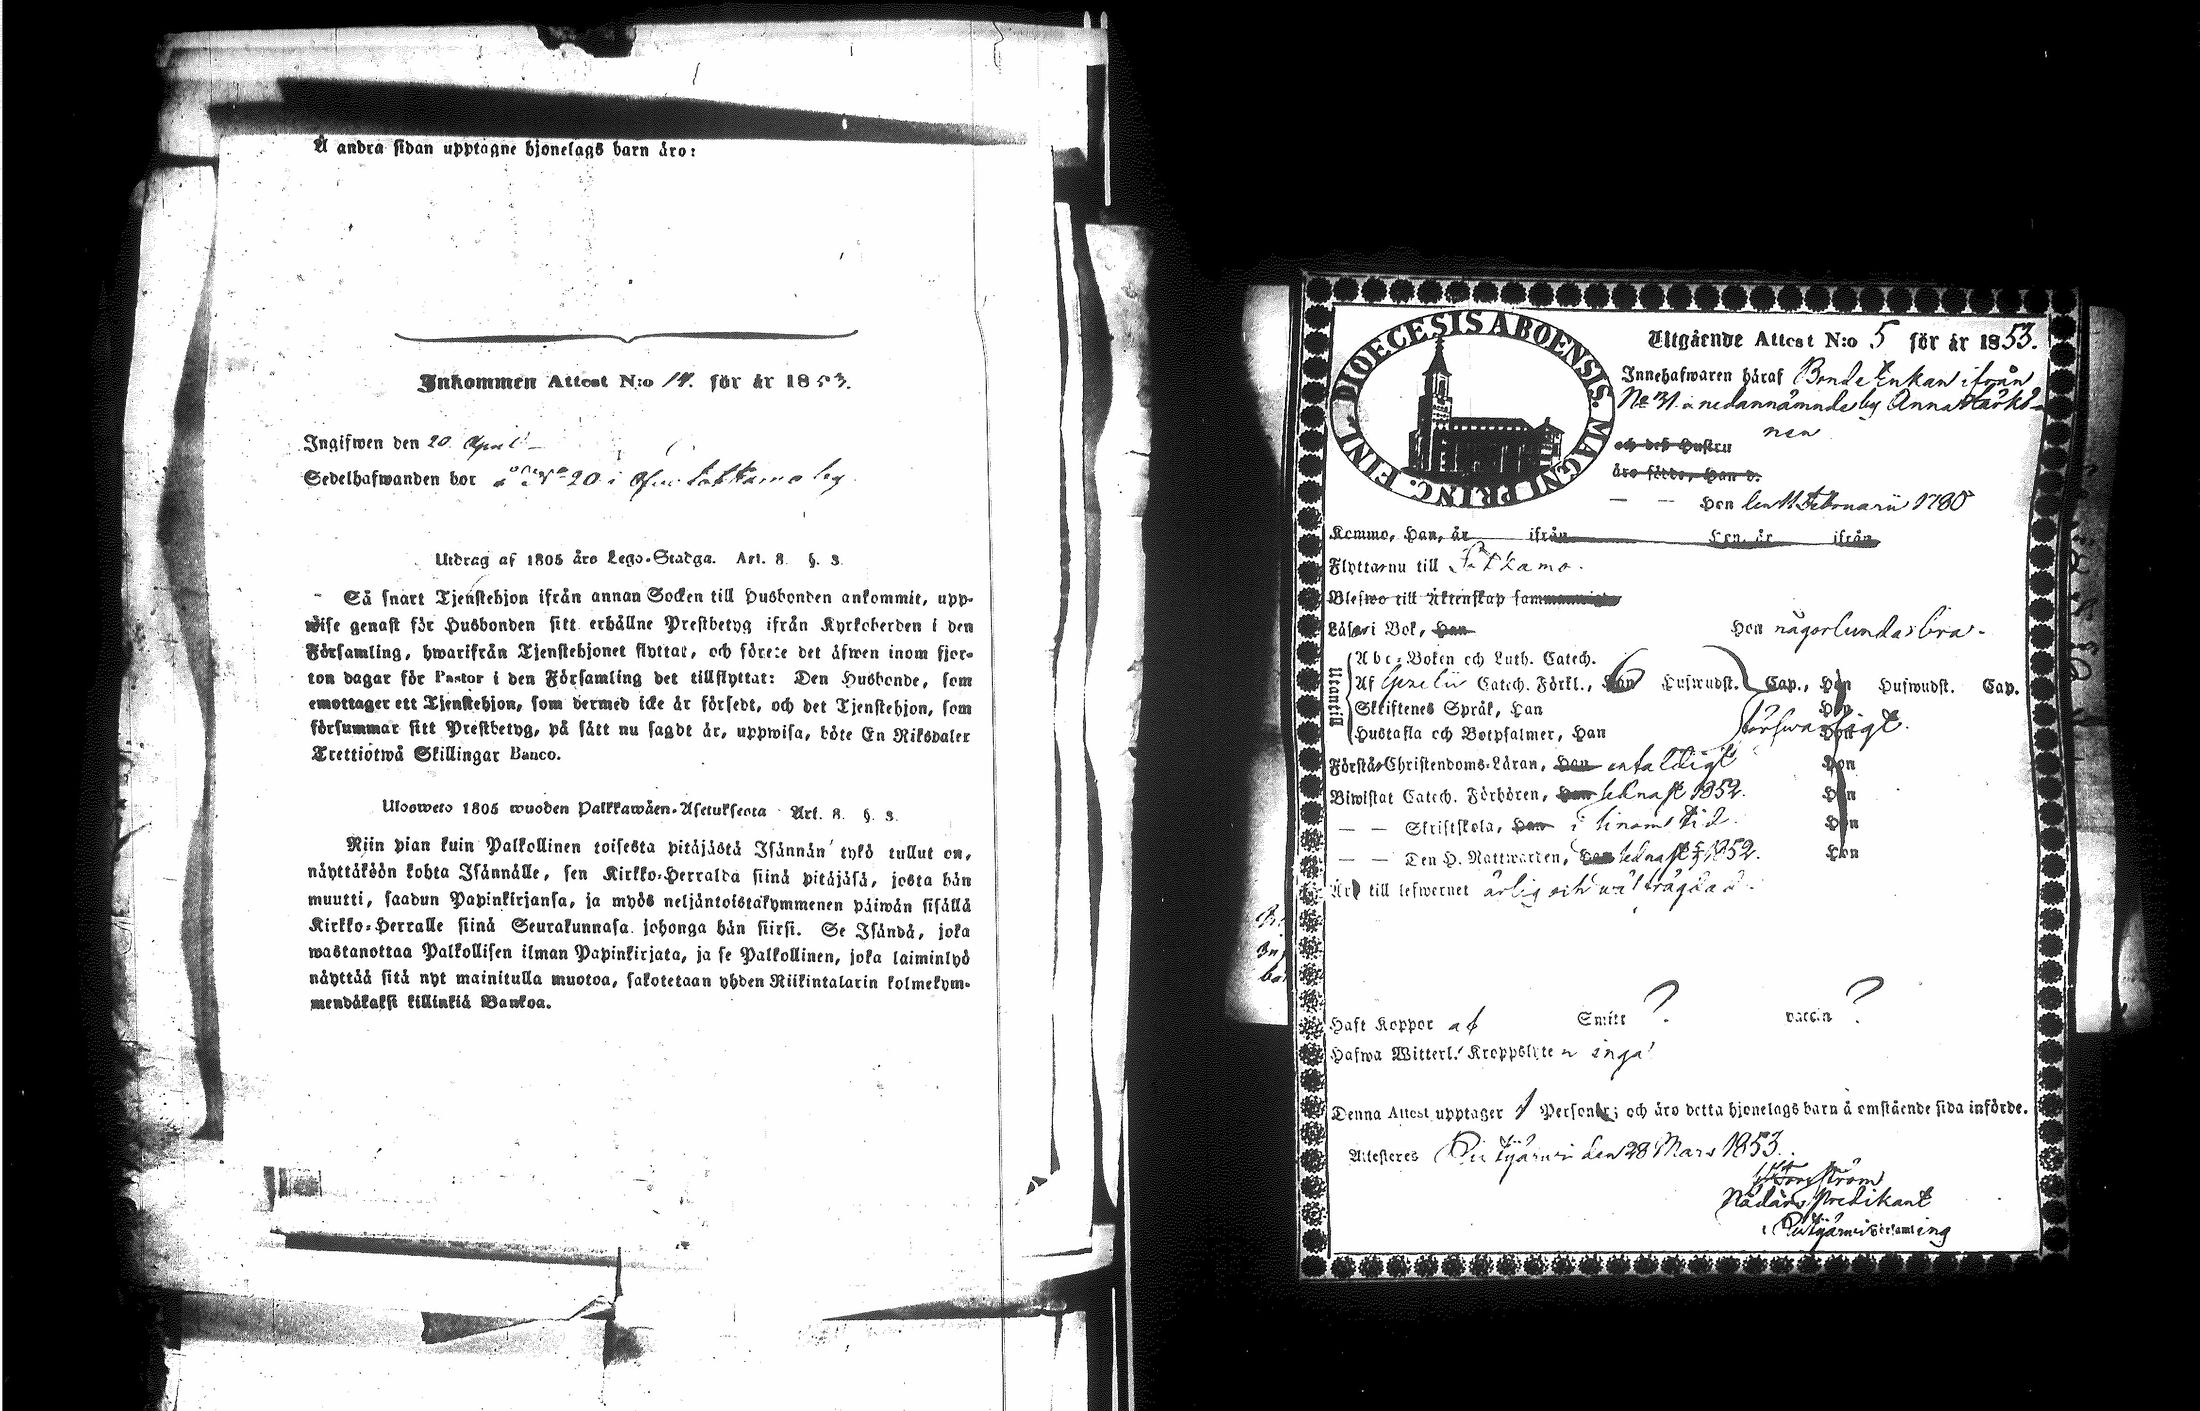 Å andra sidan upptagne hjonelags barn äro:
Inkommen Attest N:o 14. för år 1853.
Ingifwen den 20 April
Sedelhafwanden bor å N:o 20 i by
Utdrag af 1805 års Lego-Stadga. Art. 8. §. 3.
Så snart Tjenstehjon ifrån annan Socken till Husbonden ankommit, upp-
wise genast för Husbonden sitt erhållne Prestbetyg ifrån Kyrkoherden i den
Församling, hwarifrån Tjenstehjonet flyttat, och förete det äfwen inom fjor-
ton dagar för Pastor i den Församling det tillflyttat: Den Husbonde, som
emottager ett Tjenstehjon, som dermed icke är försedt, och det Tjenstehjon, som
försummar sitt Prestbetyg, på sätt nu sagdt är, uppwisa, böte En Riksdaler
Trettiotwå Skillingar Banco.
Ulosweto 1805 wuoden Palkkawäen-Asetuksesta Art. 8. §. 3.
Niin pian kuin Palkollinen toisesta pitäjästä Isännän tykö tullut on,
näyttäköön kohta Isännälle, sen Kirkko-Herralda siinä pitäjäsä, josta hän
muutti, saadun Papinkirjansa, ja myös neljäntoistakymmenen päiwän sisällä
Kirkko-Herralle siinä Seurakunnasa johonga hän siirsi. Se Isändä, joka
wastanottaa Palkollisen ilman Papinkirjata, ja se Palkollinen, joka laiminlyö
näyttää sitä nyt mainitulla muotoa, sakotetaan yhden Riikintalarin kolmekym-
mendäkaksi killinkiä Bankoa.
DIOECESIS ABOENSIS. MAGNI PRINC. FINL.
Utgående Attest N:o 5 för år 1853.
Innehafwaren häraf Bonde Enkan ifrån
No 31 i nedannämnde by Anna
nen
och des Hustru
äro födde, Han d.
— — Hon den 11 Februarii 1780
Komne, Han, år ifrån Hon, år ifrån
Flyttar nu till Pitkamo.
Blefwo till Äktenskap sammanwigde
Läser i Bok, Han Hon någorlunda bra.
Utantill
Abc-Boken och Luth. Catech.
Af Gezelii Catech. Förkl., Han Hufwudst. Cap., Hon Hufwudst. Cap.
Skriftenes Språk, Han Hon
Hustafla och Botpsalmer, Han Hon förswarligt.
Förstår Christendoms-Läran, Han enfaldigt Hon
Biwistat Catech. Förhören, Han sednast 1852. Hon
— — Skriftskola, Han i sinom tid. Hon
— — Den H. Nattwarden, Han sednast 1852. Hon
Är till lefwernet ärlig och wälfrägdad.
Haft Koppor af Smitt ? vaccin ?
Hafwa Witterl. Kroppslyten inga
Denna Attest upptager 1 Person; och äro detta hjonelags barn å omstående sida införde.
Attesteras Pyhäjärwi den 28 Mars 1853.
Nådårs Predikant
i Församling